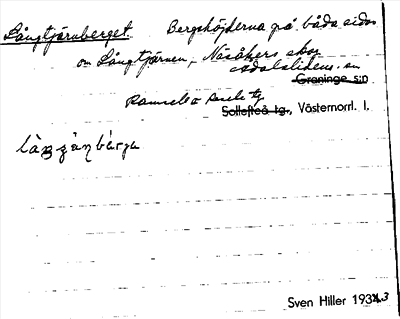 Långtjärnberget. Bergshöjderna på båda sidor
om Långtjärnen, Näsåkers skog
Ådalslidens sn
Graninge s:n
Ramsele o Resele tg
Sollefteå tg., Västernorrl. l.
Sven Hiller 1933